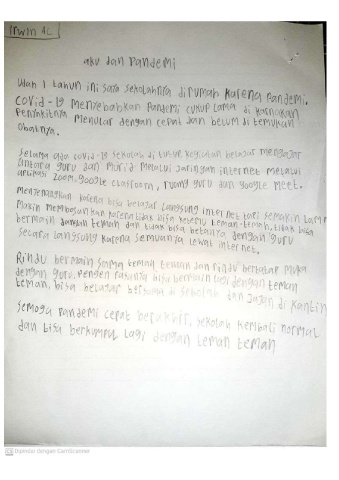 Irwin 4C
aku dan Pandemi
Udah 1 tahun ini saya sekolahnya dirumah karena Pandemi.
Covid-19 menyebabkan Pandemi cukup lama di karnakan
Penyakitnya menular dengan cepat dan belum di temukan
Obatnya.
Selama ada covid-19 sekolah di tutup kegiatan belajar mengajar
antara guru dan murid melalui Jaringan internet melalui
aplikasi Zoom, google classroom, ruang guru dan google meet.
Menyenangkan karena bisa belajar langsung internet tapi semakin lama
Makin membosankan karena tidak bisa ketemu teman-teman, tidak bisa
bermain dengan teman dan tidak bisa bertanya dengan guru
secara langsung karena semuanya lewat internet.
Rindu bermain sama teman teman dan rindu bertatap muka
dengan guru. Pengen rasanya bisa bermain lagi dengan teman
teman, bisa belajar di sekolah dan Jajan di kantin
Semoga Pandemi cepat berakhir, sekolah kembali normal
dan bisa berkumpul lagi dengan teman teman
CS Dipindai dengan CamScanner